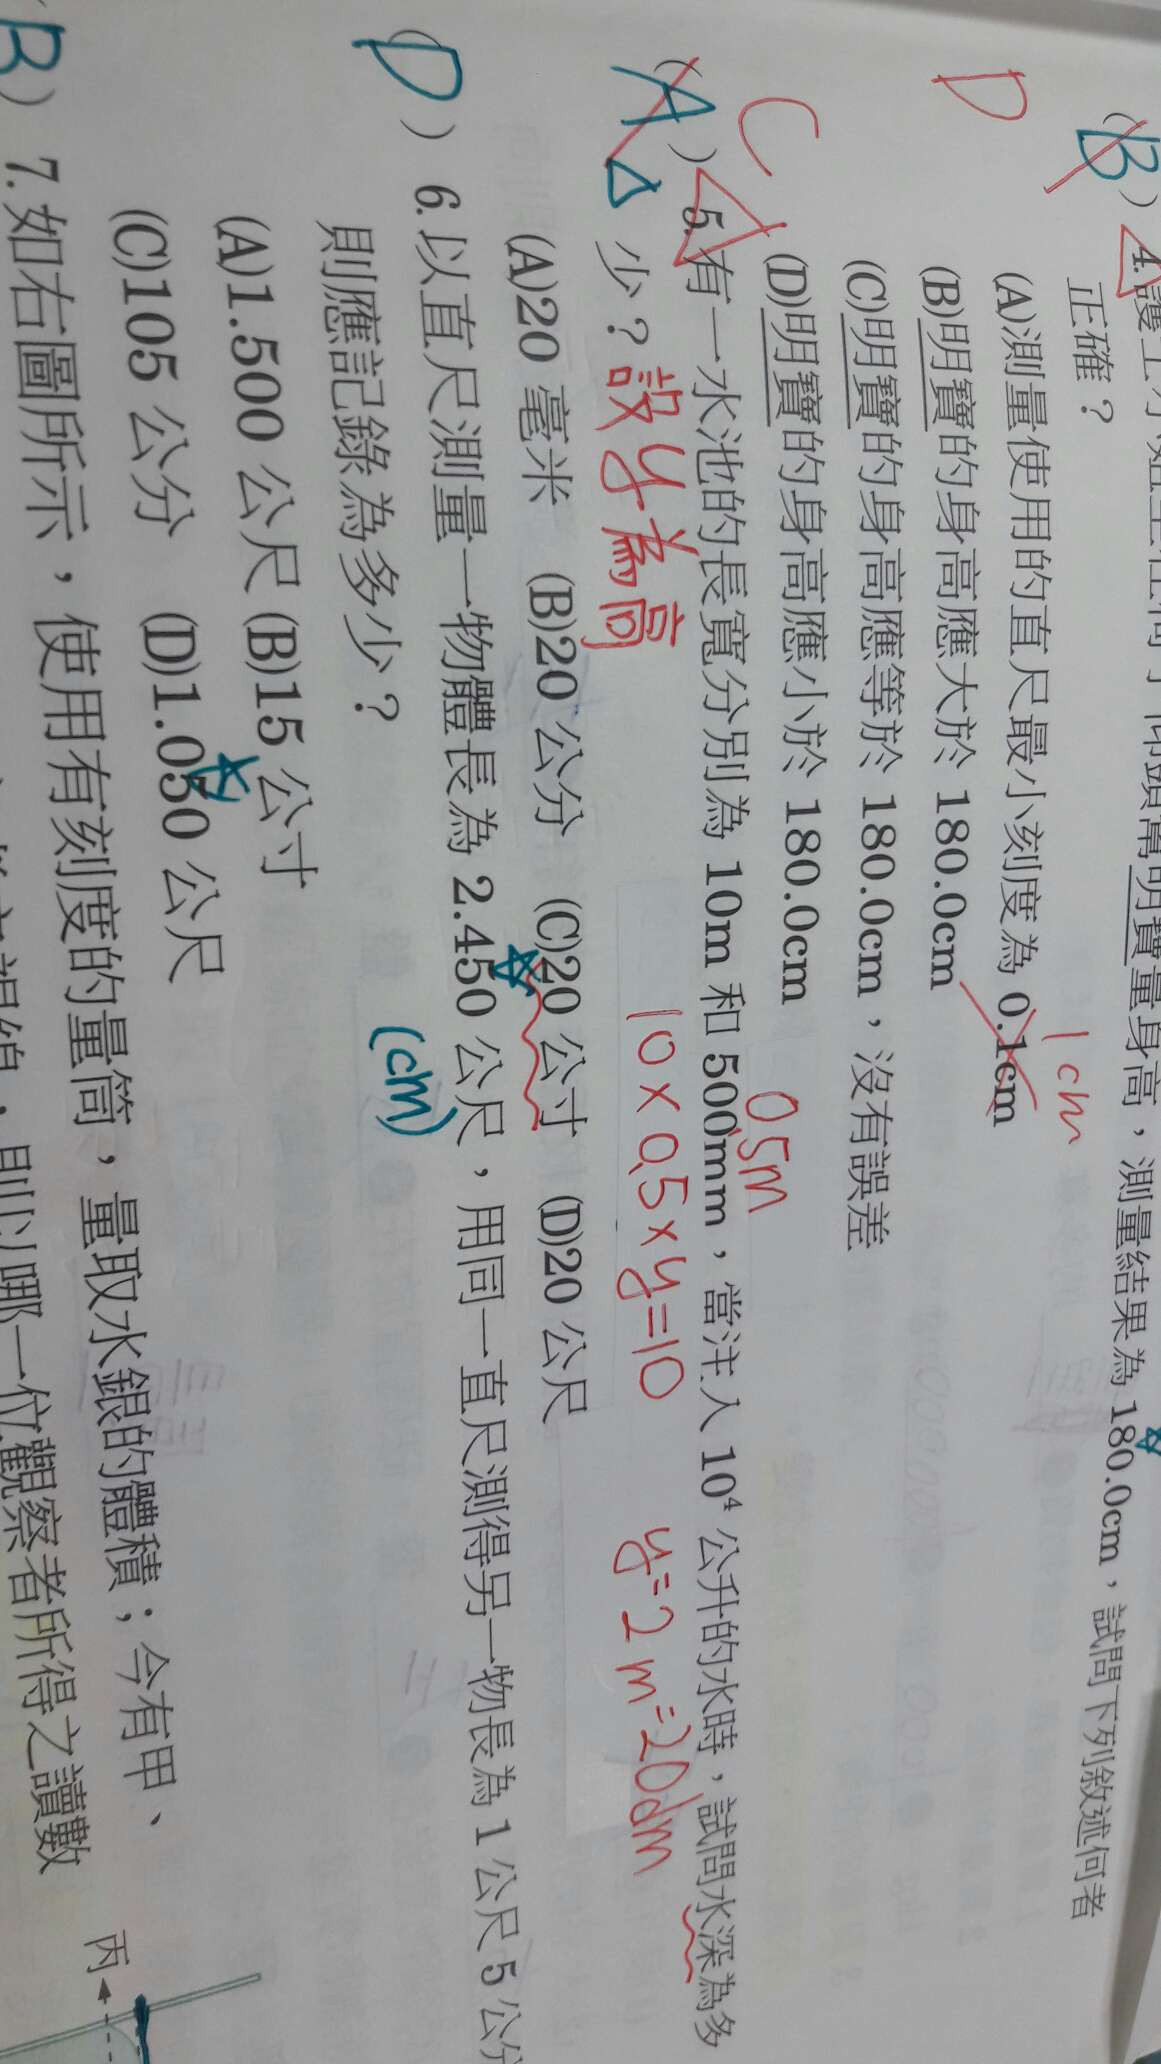 D
(B)4.護士小姐
明寶量身高,測量結果為180.0cm,試問下列敘述何者
正確?
1cm
(A)測量使用的直尺最小刻度為0.1cm
(B)明寶的身高應大於180.0cm
(C)明寶的身高應等於180.0cm,沒有誤差
(D)明寶的身高應小於180.0cm
C
0.5m
(A)5.有一水池的長寬分別為10m和500mm,當注入10⁴公升的水時,試問水深為多
少?設y為高 10×0.5×y=10 y=2m=20dm
(A)20毫米 (B)20公分 (C)20公寸 (D)20公尺
(D)6.以直尺測量一物體長為2.450公尺,用同一直尺測得另一物長為1公尺5公分
則應記錄為多少? (cm)
(A)1.500公尺 (B)15公寸
(C)105公分 (D)1.050公尺
(B)7.如右圖所示,使用有刻度的量筒,量取水銀的體積;今有甲、
則以哪一位觀察者所得之讀數
丙